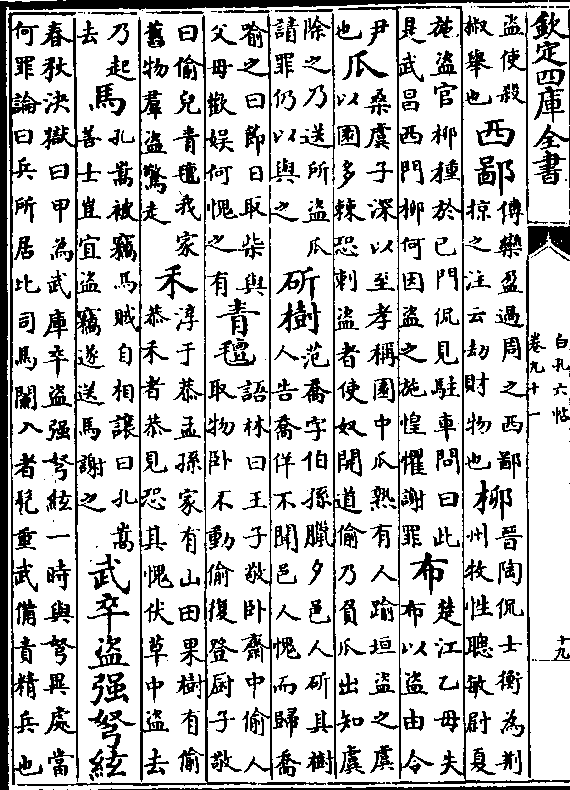 欽定四庫全書
白孔六帖
卷九十一
十九
盜使殺
椒舉也
西鄙
傳欒盈過周之西鄙
掠之注云劫財物也
柳
晉陶侃士衡為荆
州牧性聰敏尉夏
施盜官柳種於已門侃見駐車問曰此
是武昌西門柳何因盜之施惶懼謝罪
布
楚江乙母失
布以盜由令
尹
也
瓜
桑虞子深以至孝稱園中瓜熟有人踰垣盜之虞
以園多棘恐刺盜者使奴開道偷乃負瓜出知虞
除之乃送所盜瓜
請罪仍以與之
斫樹
范喬字伯孫臘夕邑人斫其樹
人告喬佯不聞邑人愧而歸喬
喻之曰節日取柴與
父母歡娱何愧之有
青氊
語林曰王子敬卧齋中偷人
取物卧不動偷復登厨子敬
曰偷兒青氊我家
舊物羣盜驚走
禾
淳于恭孟孫家有山田果樹有偷
恭禾者恭見恐其愧伏草中盜去
乃起
去
馬
孔嵩被竊馬賊自相讓曰孔嵩
善士豈宜盜竊遂送馬謝之
武卒盜强弩絃
春秋決獄曰甲為武庫卒盜强弩絃一時與弩異處當
何罪論曰兵所居比司馬闌入者髠重武備責精兵也